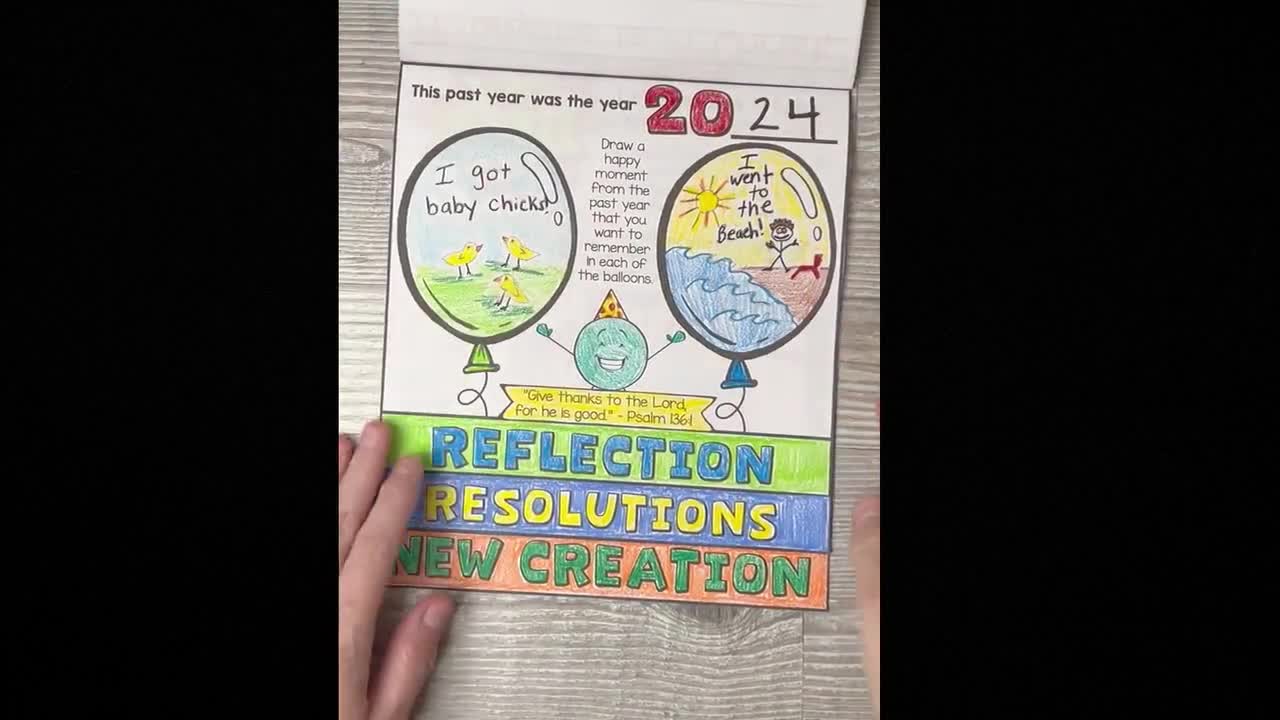 This past year was the year 2024
I got
baby chicks!
Draw a
happy
moment
from the
past year
that you
want to
remember
in each of
the balloons.
I
went
to
the
Beach!
"Give thanks to the Lord,
for he is good." - Psalm 136:1
REFLECTION
RESOLUTIONS
NEW CREATION